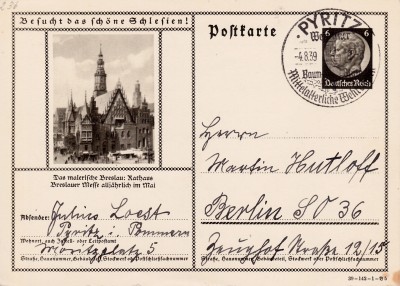 Besucht das schöne Schlesien!
Das malerische Breslau: Rathaus
Breslauer Messe alljährlich im Mai
Absender: Julius Loest
Pyritz i. Pommern
Wohnort, auch Zustell- oder Leitpostamt
Moritzplatz 5
Straße, Hausnummer, Gebäudeteil, Stockwerk od. Postschließfachnummer
Postkarte
PYRITZ
-4.8.39
Mittelalterliche Wehr
6 6
Deutsches Reich
Herrn
Martin Hutloff
Berlin SO 36
Zeughof Straße 12/15
Straße, Hausnummer, Gebäudeteil, Stockwerk oder Postschließfachnummer
39-142-1-B4